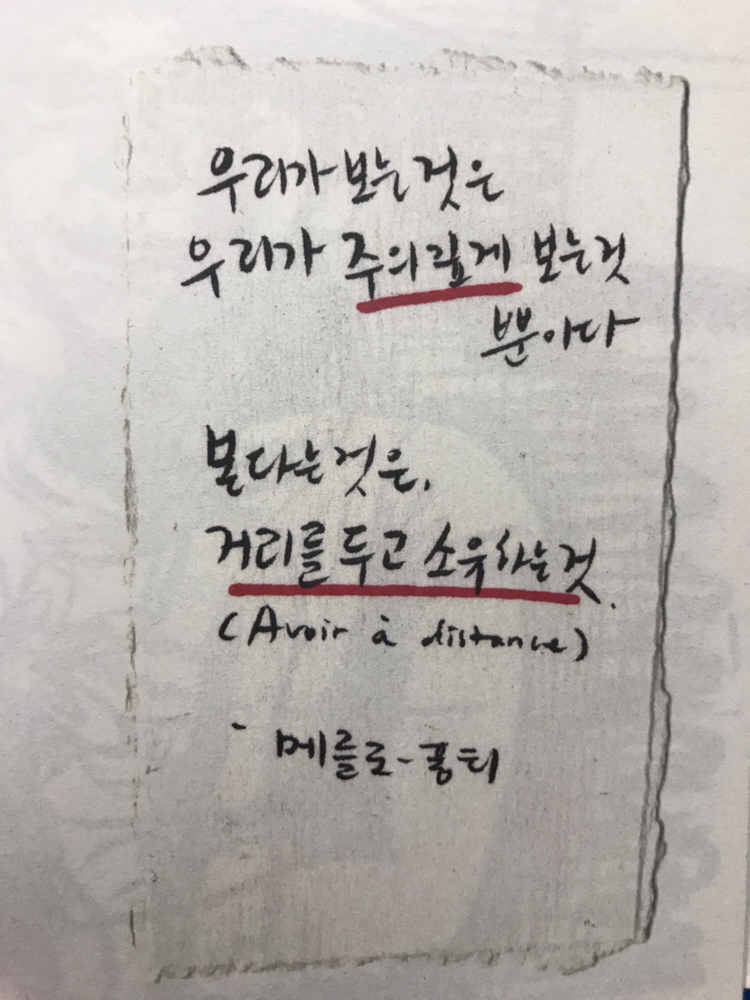 우리가 보는것은
우리가 주의깊게 보는것
뿐이다
본다는것은,
거리를 두고 소유하는것.
(Avoir à distance)
- 메를로-퐁티